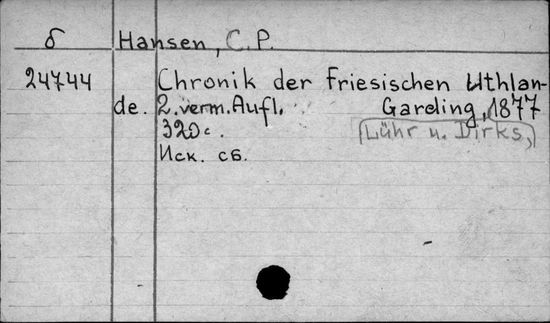 б Hansen, C.P.
24744 Chronik der Friesischen Uthlan-
de. 2. verm. Aufl. Garding, 1877
320 с. (Lühr u. Dirks,)
Иск. сб.